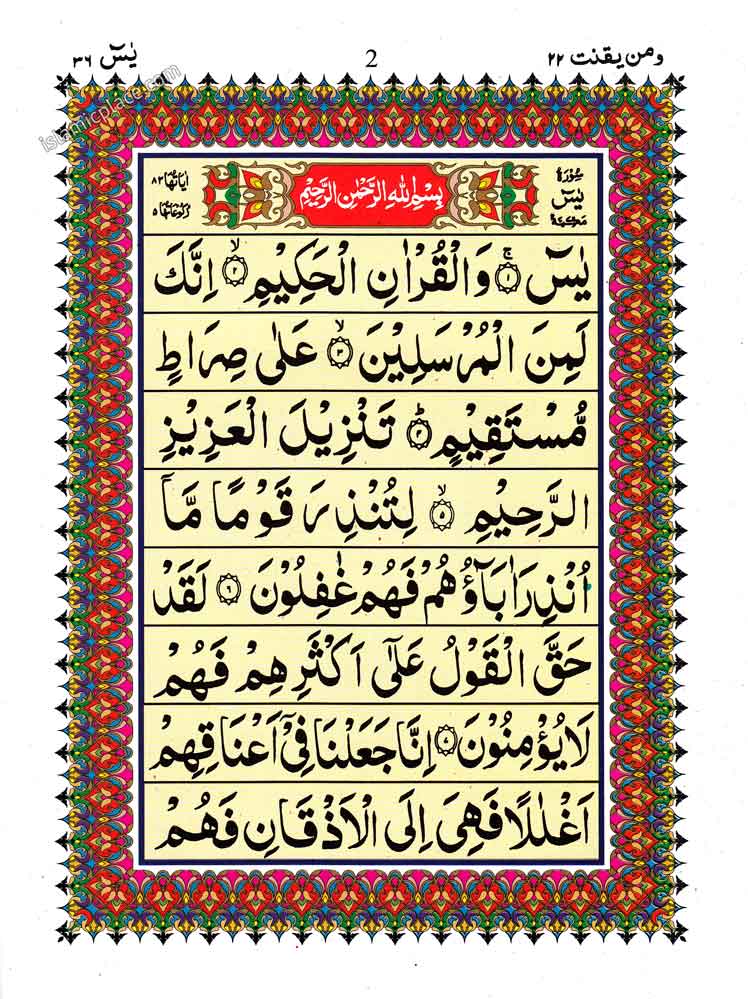 ومن یقنت ۲۲
2
یٰسٓ ۳۶
islamicplace.com
سورۃ
یٰسٓ
مکیۃ
بِسْمِ اللّٰهِ الرَّحْمٰنِ الرَّحِیْمِ
اٰیاتها ۸۳
رکوعاتها ۵
یٰسٓ ۚ﴿۱﴾ وَالْقُرْاٰنِ الْحَكِیْمِ ۙ﴿۲﴾ اِنَّكَ
لَمِنَ الْمُرْسَلِیْنَ ۙ﴿۳﴾ عَلٰی صِرَاطٍ
مُّسْتَقِیْمٍ ؕ﴿۴﴾ تَنْزِیْلَ الْعَزِیْزِ
الرَّحِیْمِ ۙ﴿۵﴾ لِتُنْذِرَ قَوْمًا مَّاۤ
اُنْذِرَ اٰبَآؤُهُمْ فَهُمْ غٰفِلُوْنَ ﴿۶﴾ لَقَدْ
حَقَّ الْقَوْلُ عَلٰۤی اَكْثَرِهِمْ فَهُمْ
لَا یُؤْمِنُوْنَ ﴿۷﴾ اِنَّا جَعَلْنَا فِیْۤ اَعْنَاقِهِمْ
اَغْلٰلًا فَهِیَ اِلَی الْاَذْقَانِ فَهُمْ